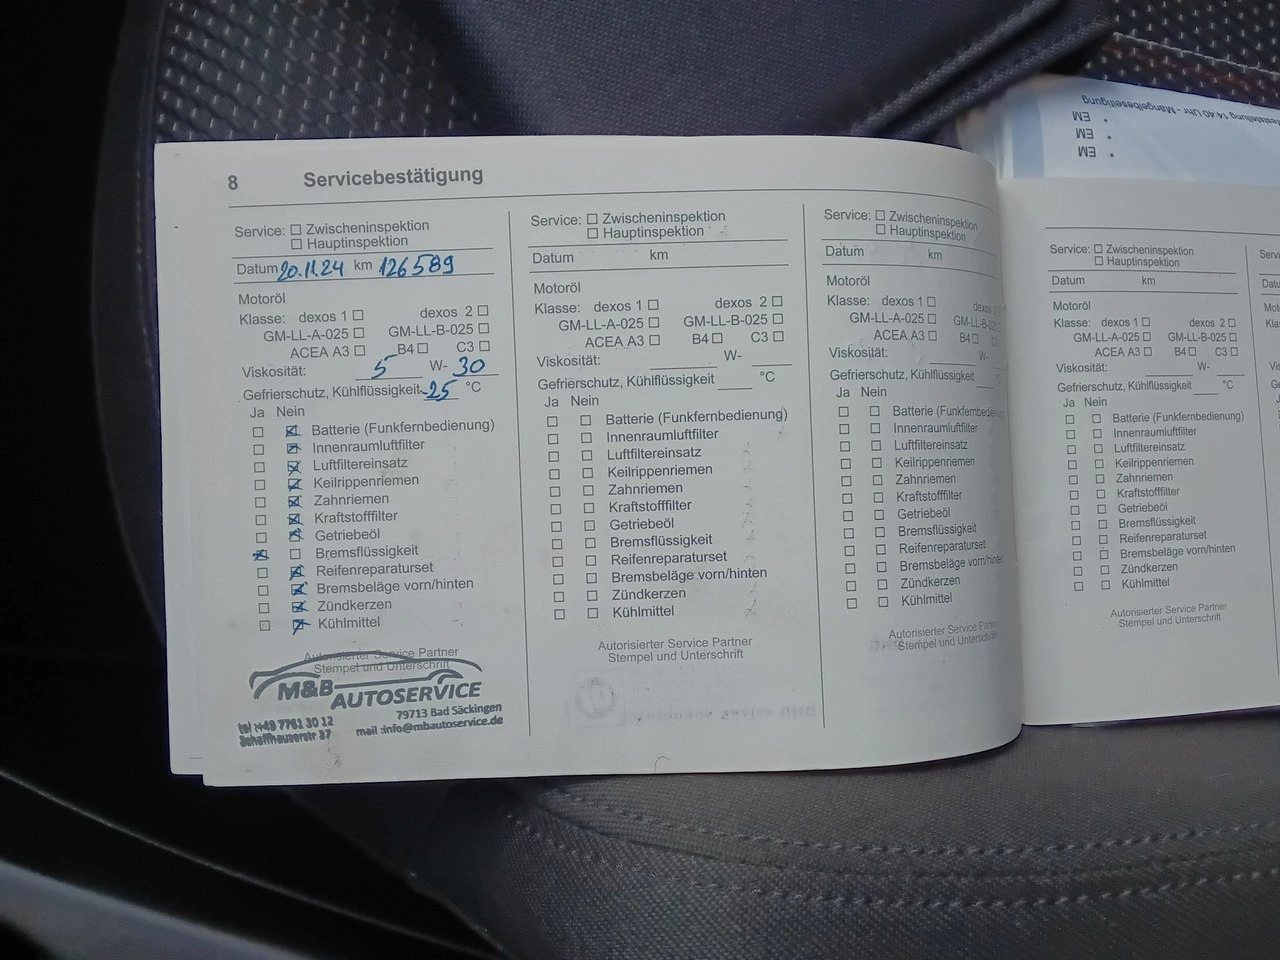 8 Servicebestätigung
Service: ☐ Zwischeninspektion
☐ Hauptinspektion
Datum 20.11.24 km 126589
Motoröl
Klasse: dexos 1 ☐ dexos 2 ☐
GM-LL-A-025 ☐ GM-LL-B-025 ☐
ACEA A3 ☐ B4 ☐ C3 ☐
Viskosität: 5 W- 30
Gefrierschutz, Kühlflüssigkeit -25 °C
Ja Nein
☐ ☒ Batterie (Funkfernbedienung)
☐ ☒ Innenraumluftfilter
☐ ☒ Luftfiltereinsatz
☐ ☒ Keilrippenriemen
☐ ☒ Zahnriemen
☐ ☒ Kraftstofffilter
☐ ☒ Getriebeöl
☒ ☐ Bremsflüssigkeit
☐ ☒ Reifenreparaturset
☐ ☒ Bremsbeläge vorn/hinten
☐ ☒ Zündkerzen
☐ ☒ Kühlmittel
Autorisierter Service Partner
Stempel und Unterschrift
M&B AUTOSERVICE
79713 Bad Säckingen
tel :+49 7761 30 12
Schaffhauserstr 37
mail :info@mbautoservice.de
Service: ☐ Zwischeninspektion
☐ Hauptinspektion
Datum km
Motoröl
Klasse: dexos 1 ☐ dexos 2 ☐
GM-LL-A-025 ☐ GM-LL-B-025 ☐
ACEA A3 ☐ B4 ☐ C3 ☐
Viskosität: W-
Gefrierschutz, Kühlflüssigkeit °C
Ja Nein
☐ ☐ Batterie (Funkfernbedienung)
☐ ☐ Innenraumluftfilter
☐ ☐ Luftfiltereinsatz
☐ ☐ Keilrippenriemen
☐ ☐ Zahnriemen
☐ ☐ Kraftstofffilter
☐ ☐ Getriebeöl
☐ ☐ Bremsflüssigkeit
☐ ☐ Reifenreparaturset
☐ ☐ Bremsbeläge vorn/hinten
☐ ☐ Zündkerzen
☐ ☐ Kühlmittel
Autorisierter Service Partner
Stempel und Unterschrift
Service: ☐ Zwischeninspektion
☐ Hauptinspektion
Datum km
Motoröl
Klasse: dexos 1 ☐ dexos
GM-LL-A-025 ☐ GM-LL-B-025
ACEA A3 ☐ B4 ☐ C3
Viskosität: W-
Gefrierschutz, Kühlflüssigkeit
Ja Nein
☐ ☐ Batterie (Funkfernbedienung
☐ ☐ Innenraumluftfilter
☐ ☐ Luftfiltereinsatz
☐ ☐ Keilrippenriemen
☐ ☐ Zahnriemen
☐ ☐ Kraftstofffilter
☐ ☐ Getriebeöl
☐ ☐ Bremsflüssigkeit
☐ ☐ Reifenreparaturset
☐ ☐ Bremsbeläge vorn/hinten
☐ ☐ Zündkerzen
☐ ☐ Kühlmittel
Autorisierter Service Partner
Stempel und Unterschrift
14:40 Uhr - Mängelbeseitigung
• EM
• EM
• EM
Service: ☐ Zwischeninspektion
☐ Hauptinspektion
Datum km
Motoröl
Klasse: dexos 1 ☐ dexos 2 ☐
GM-LL-A-025 ☐ GM-LL-B-025 ☐
ACEA A3 ☐ B4 ☐ C3 ☐
Viskosität: W-
Gefrierschutz, Kühlflüssigkeit °C
Ja Nein
☐ ☐ Batterie (Funkfernbedienung)
☐ ☐ Innenraumluftfilter
☐ ☐ Luftfiltereinsatz
☐ ☐ Keilrippenriemen
☐ ☐ Zahnriemen
☐ ☐ Kraftstofffilter
☐ ☐ Getriebeöl
☐ ☐ Bremsflüssigkeit
☐ ☐ Reifenreparaturset
☐ ☐ Bremsbeläge vorn/hinten
☐ ☐ Zündkerzen
☐ ☐ Kühlmittel
Autorisierter Service Partner
Stempel und Unterschrift